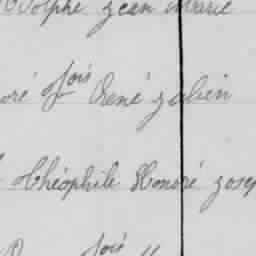 Adolphe Jean Marie
oré fois René Julien
Théophile Honoré Josep
fois